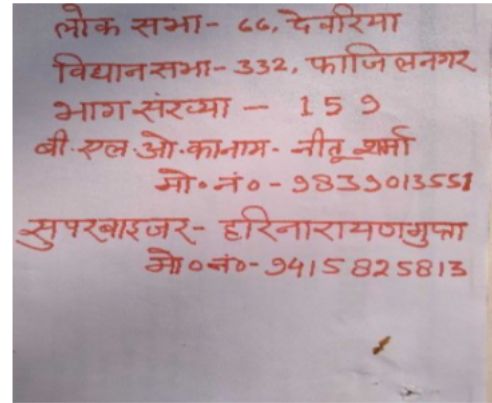 लोक सभा- ६६, देवरिया
विधानसभा- 332, फाजिलनगर
भाग संख्या - 159
बी.एल.ओ.का नाम- नीतू शर्मा
मो॰ नं॰ - 9839013551
सुपरवाइजर- हरिनारायण गुप्ता
मो॰ नं॰- 9415825813